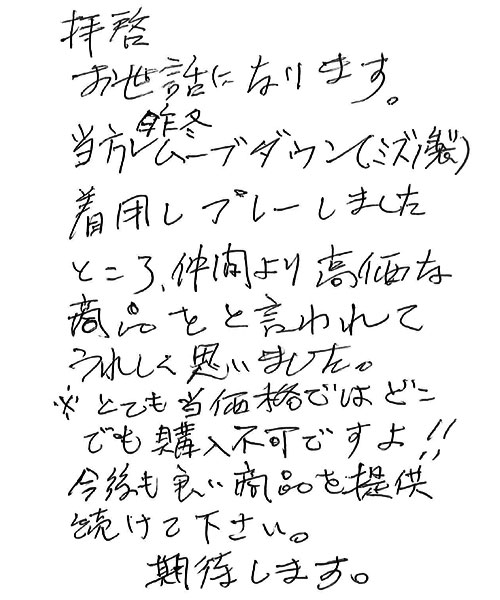 拝啓
お世話になります。
当方昨冬ムーブダウン(ミズノ製)
着用しプレーしました
ところ、仲間より高価な
商品をと言われて
うれしく思いました。
※とても当価格ではどこ
でも購入不可ですよ!!
今後も良い商品を提供
続けて下さい。
期待します。